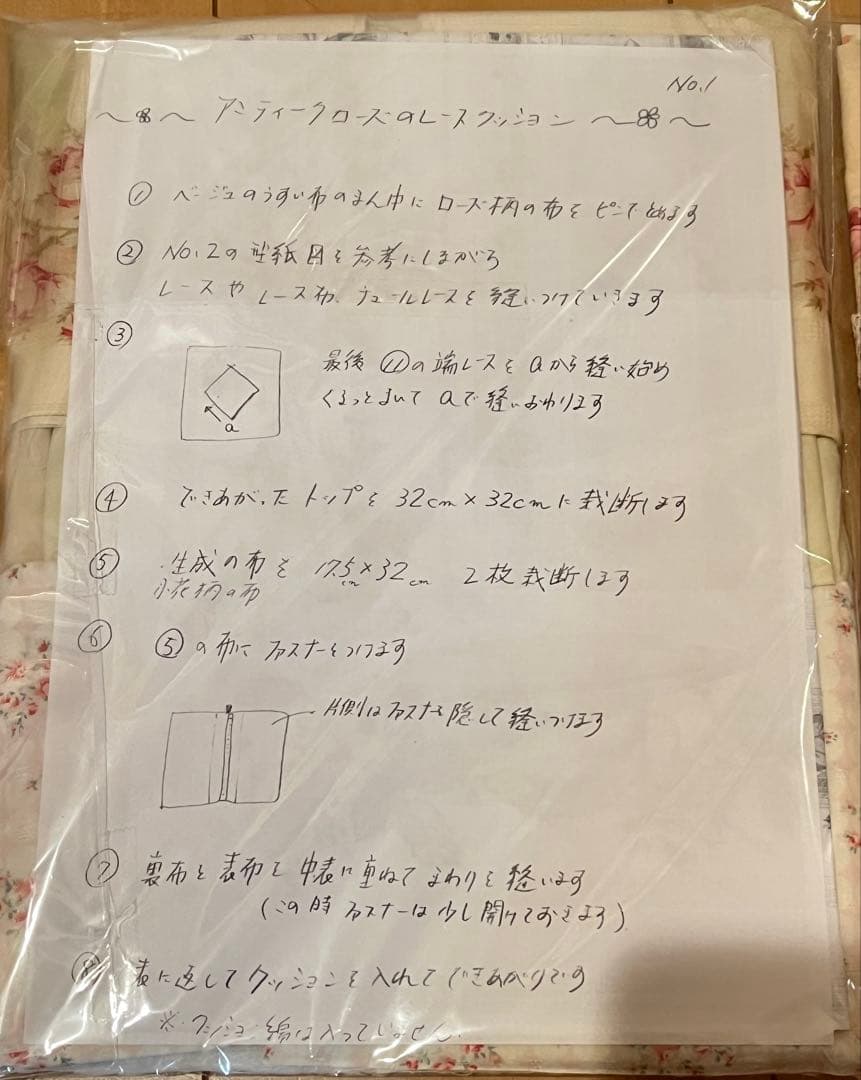 No.1
～ アンティークローズのレースクッション ～ ～
① ベージュのうすい布のまん中に ローズ柄の布を ピンで とめます
② No.2の型紙図を参考にしながら
レースや レース布、チュールレースを縫いつけていきます
③
最後 ⑪の端レースを aから縫い始め
くるっとまいて aで縫いおわります
a
④ できあがったトップを 32cm×32cmに裁断します
⑤ 生成の布を 17.5cm×32cm 2枚裁断します
小花柄の布
⑥ ⑤の布に ファスナーをつけます
片側はファスナーを隠して縫いつけます
⑦ 裏布と表布を中表に重ねてまわりを縫います
(この時 ファスナーは少し開けておきます)
⑧ 表に返してクッションを入れてできあがりです
※クッション綿は入っていません.